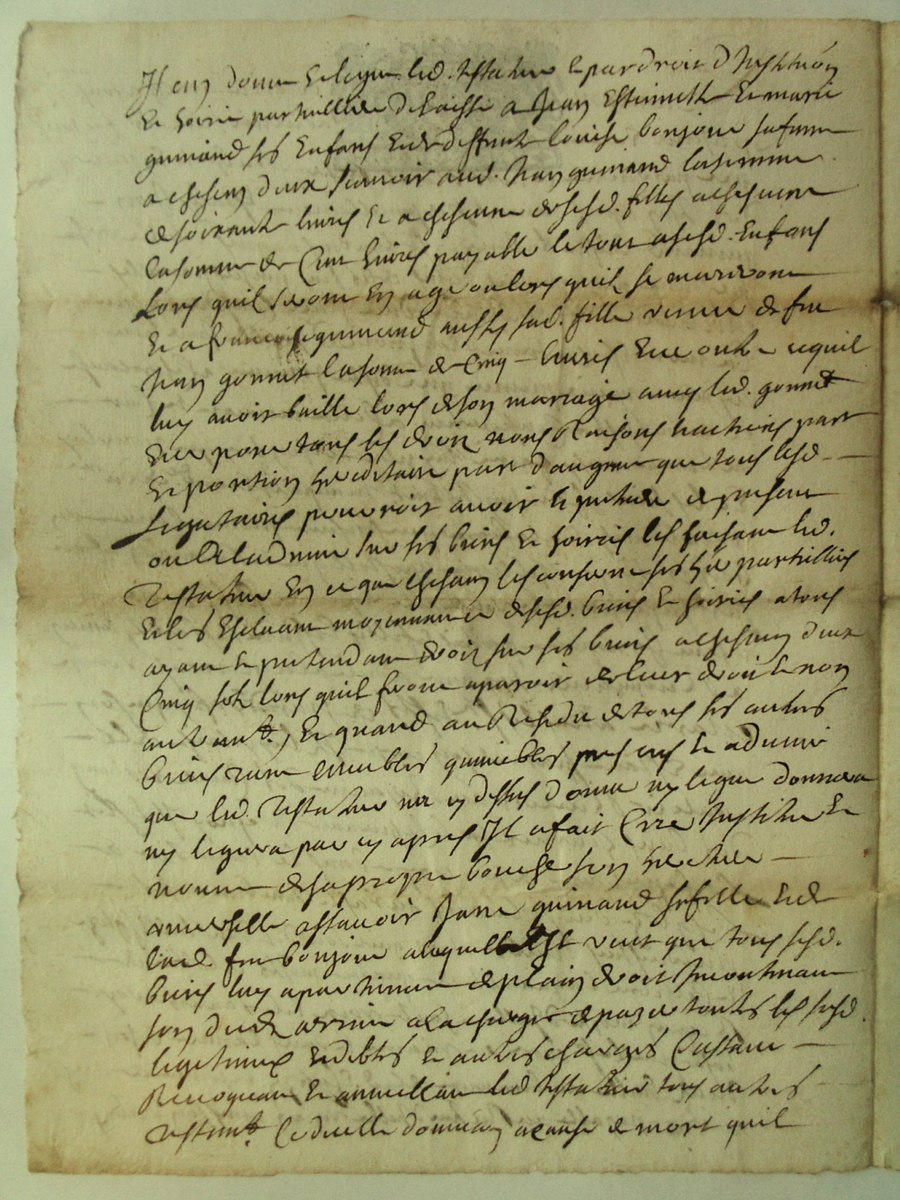 Item donne & legue led. testateur & par droit d'Institu͠on
& hoirie particulliere delaisse a Jean Estiennette & marie
guinand ses enfans & de deffunte louise bonjour sa femme
a chascun deux scavoir aud. Jean guinand la somme
de soixante livres & a chascune de sesd. filles a chascune
la somme de Cent livres payable le tout a sesd. Enfans
Lors quil seront En age ou lors quil se marieront
Et a francoise guinand aussy sad. fille veuve de feu
Jean gonnet la somme de Cinq livres & ce outre ce quil
luy avoit baille lors de son mariage avec led. gonnet
& ce pour tous les droitz noms Raisons & actions part
& portion hereditaire part d'augment que tous lesd.
Legataires pourroit avoir & pretendre de present
ou a ladvenir sur ses biens & hoiries les faisant led.
testateur En ce que chascun les concerne ses her. particulliers
& les Excluant moyennant ce de sesd. biens & hoiries a tous
ayant & pretendant droit sur ses biens a chascun deux
Cinq solz lors quil feront aparoir de leur droit & non
autremt., Et quand au Residu de tous ses autres
biens tant meubles quimeubles presens & advenir
que led. testateur na cy dessus donne ny legue donnera
ny leguera par cy apres Il a fait Cree Institue &
nomme de sa propre bouche son heritiere
universelle assavoir Jane guinand sa fille & de
lad. feu bonjour a laquelle Il veut que tous sesd.
biens luy apartienne de plain droit Incontinant
son deces advenu a la charge de payer toutes les susd.
legitimes & debtes & autres charges Cassant
Revoquant & annullant led. testateur tous autres
testamt. Codicille donation a cause de mort quil